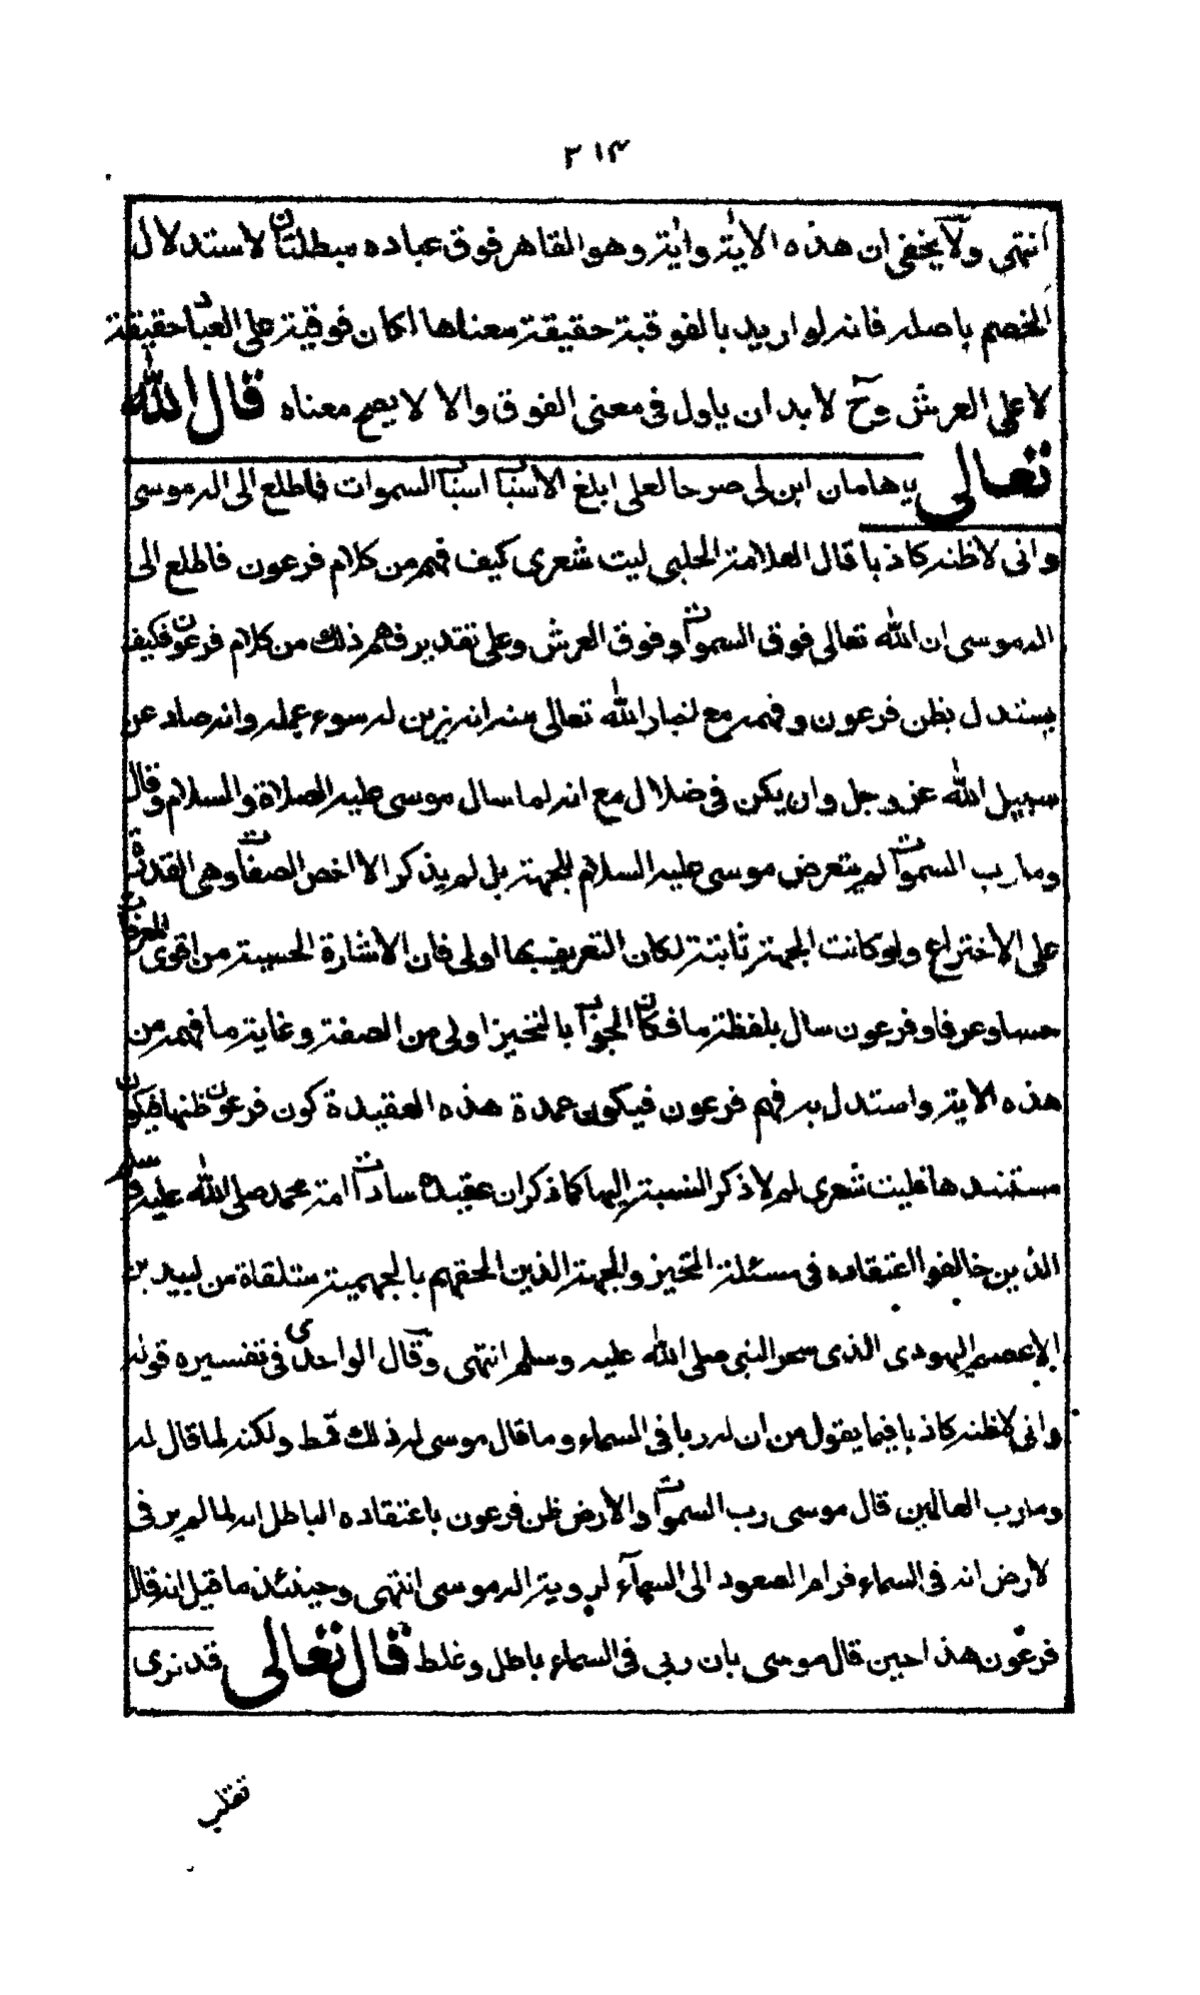 ٢١٤
انتهى ولا يخفى ان هذه الاية واية وهو القاهر فوق عباده مبطلتان لاستدلال
الخصم باصله فانه لو اريد بالفوقية حقيقة معناها لكان فوقية على العباد حقيقة
لا على العرش وح لا بد ان ياول في معنى الفوق والا لا يصح معناه قال الله
تعالى يا هامان ابن لي صرحا لعلي ابلغ الاسباب اسباب السموات فاطلع الى اله موسى
واني لاظنه كاذبا قال العلامة الحلبي ليت شعري كيف فهم من كلام فرعون فاطلع الى
اله موسى ان الله تعالى فوق السموات وفوق العرش وعلى تقدير فهم ذلك من كلام فرعون فكيف
يستدل بظن فرعون وفهمه مع اخبار الله تعالى عنه انه زين له سوء عمله وانه صاد عن
سبيل الله عز وجل وان يكن في ضلال مع انه لما سال موسى عليه الصلاة والسلام وقال
وما رب السموات لم يتعرض موسى عليه السلام للجهة بل لم يذكر الا اخص الصفات وهي القدرة
على الاختراع ولو كانت الجهة ثابتة لكان التعريف بها اولى فان الاشارة الحسية من اقوى المعرفات
حسا وعرفا وفرعون سال بلفظة ما فكان الجواب بالتحيز اولى من الصفة وغاية ما فهمه من
هذه الاية واستدل به فهم فرعون فيكون عمدة هذه العقيدة كون فرعون ظنها فيكون
مستندها فليت شعري لم لا ذكر النسبة اليها كما ذكر ان عقيدة سادات امة محمد صلى الله عليه وسلم
الذين خالفوا اعتقاده في مسئلة التحيز والجهة الذين الحقهم بالجهمية متلقاة من لبيد بن
الاعصم اليهودي الذي سحر النبي صلى الله عليه وسلم انتهى وقال الواحدي في تفسيره قوله
واني لاظنه كاذبا فيما يقول من ان له ربا في السماء وما قال موسى له ذلك قط ولكنه لما قال له
وما رب العالمين قال موسى رب السموات والارض ظن فرعون باعتقاده الباطل انه لما لم ير في
لارض انه في السماء فرام الصعود الى السماء لروية اله موسى انتهى وحينئذ ما قيل انه قال
فرعون هذا حين قال موسى بان ربي في السماء باطل وغلط قال تعالى قد نرى
تقلب